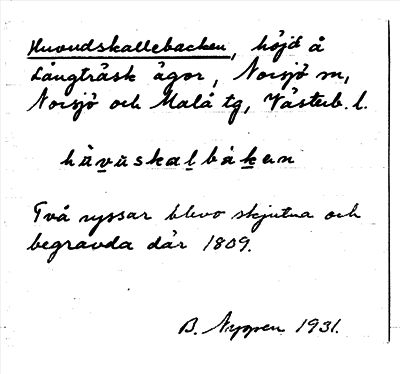 Huvudskallebacken, höjd å
Långträsk ägor, Norsjö sn,
Norsjö och Malå tg, Västerb. l.
hùvùskalbáken
Två ryssar blevo skjutna och
begravda där 1809.
B. Nygren 1931.